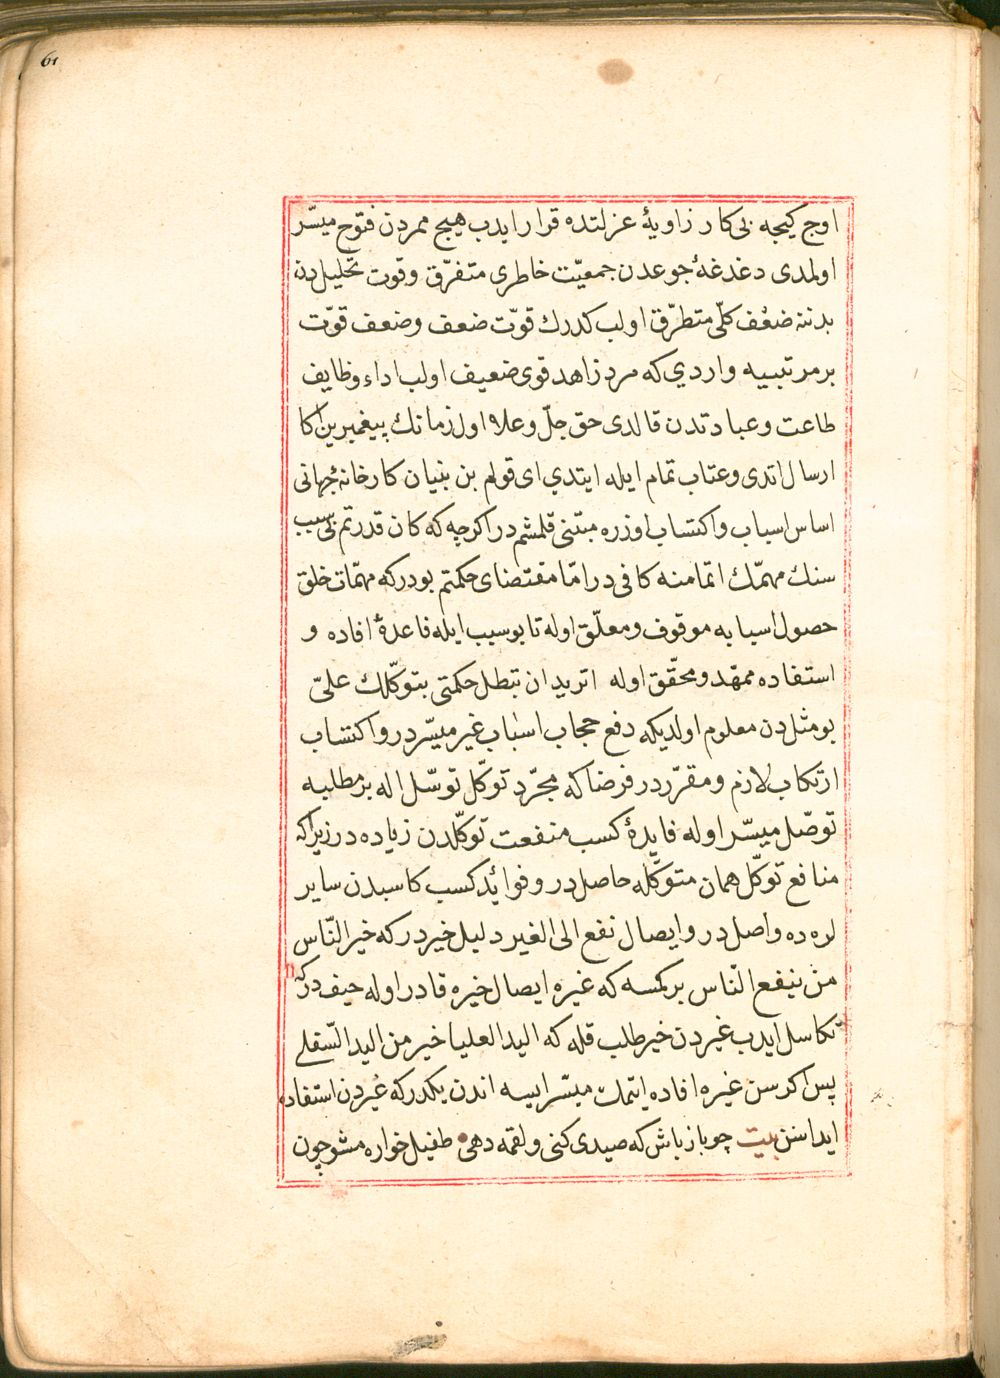 61
اوج كیجه بی كار زاویۀ عزلتده قرار ایدب هیچ ممردن فتوح میسّر
اولمدی دغدغۀ جوعدن جمعیّت خاطری متفرّق وقوت تحلیلدن
بدننه ضعف كلّی متطرّق اولب كدرك قوّت ضعف وضعف قوّت
بر مرتبیه واردی كه مرد زاهد قوی ضعیف اولب اداء وظایف
طاعت وعبادتدن قالدی حق جلّ وعلا اول زمانك پیغمبرین اكا
ارسال اتدی وعتاب تمام ایله ایتدی ای قولم بن بنیان كارخانۀ جهانی
اساس اسباب واكتساب اوزره مبتنی قلمشم در اكرچه كه كان قدرتم بی سبب
سنك مهمّك اتمامنه كافی در امّا مقتضای حكمتم بودركه مهمّات خلق
حصول اسبابه موقوف ومعلّق اوله تا بو سبب ایله قاعدۀ افاده و
استفاده ممهّد ومحقّق اوله اترید ان تبطل حكمتی بتوكّلك علیّ
بو مثلدن معلوم اولدیكه دفع حجاب اسباب غیر میسّر در واكتساب
ارتكاب لازم ومقرّردر فرضا كه مجرّد توكّل توسّل اله بر مطلبه
توصّل میسّر اوله فایدۀ كسب منفعت توكّلدن زیاده در زیرا كه
منافع توكّل همان متوكّله حاصلدر وفوائد كسب كاسبدن سایر
لره ده واصلدر وایصال نفع الی الغیر دلیل خیردر كه خیر النّاس
من ینفع النّاس بر كمسه كه غیره ایصال خیره قادر اوله حیف در كه
تكاسل ایدب غیردن خیر طلب قله كه الید العلیا خیر من الید السّفلی
پس اكر سن غیره افاده ایتمك میسّر ایسه اندن یكدركه غیردن استفاده
ایداسن بیت چو باز باش كه صیدی كنی ولقمه دهی طفیل خواره مشو چون